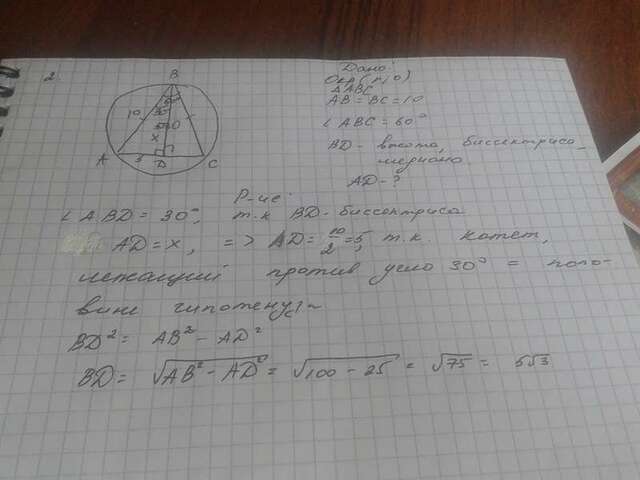 2.
Дано:
Окр (r; o)
△ABC
AB = BC = 10
∠ABC = 60°
BD - высота, биссектриса, медиана.
AD - ?
B
10
30°
x
A
5
D
C
Р-ие:
∠ABD = 30°, т.к BD - биссектриса.
AD = x, => AD = 10/2 = 5, т.к. катет,
лежащий против угла 30° = поло-
вине гипотенузы
BD² = AB² - AD²
BD = √AB² - AD² = √100 - 25 = √75 = 5√3